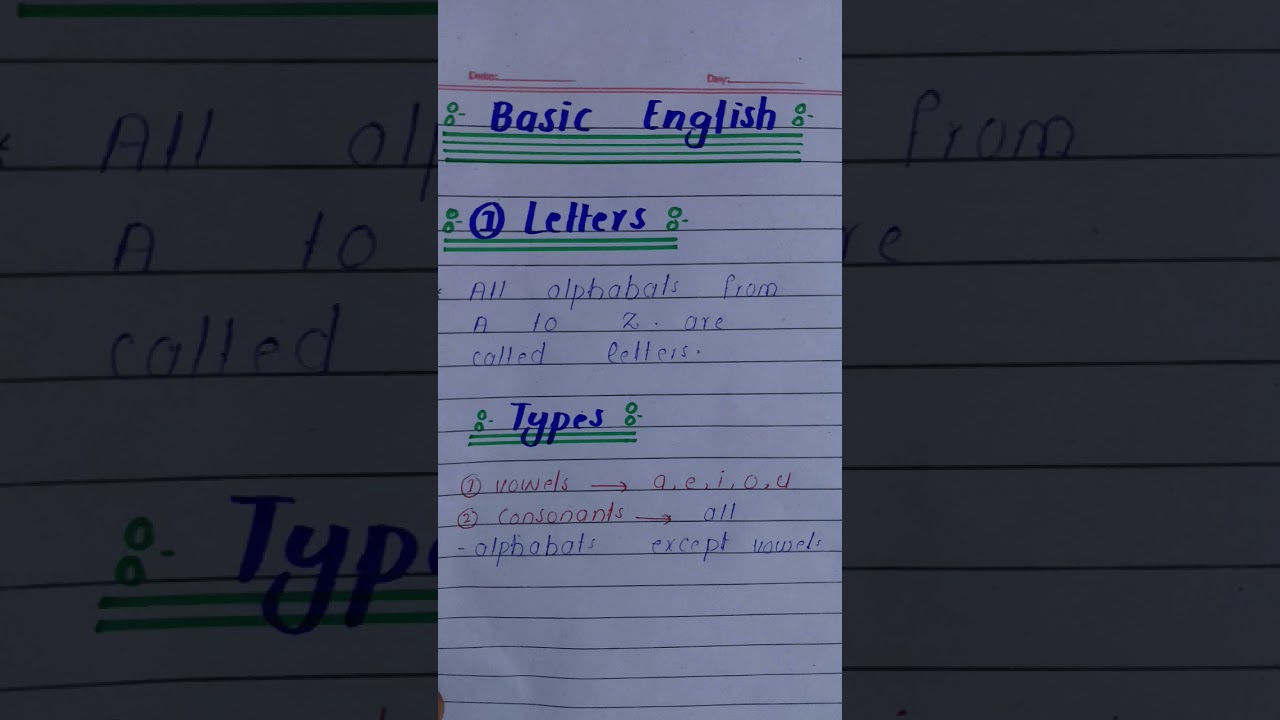 Date: Day:
Basic English
① Letters
All alphabats from
A to Z. are
called letters.
Types
① vowels → a, e, i, o, u
② consonants → all
- alphabats except vowels